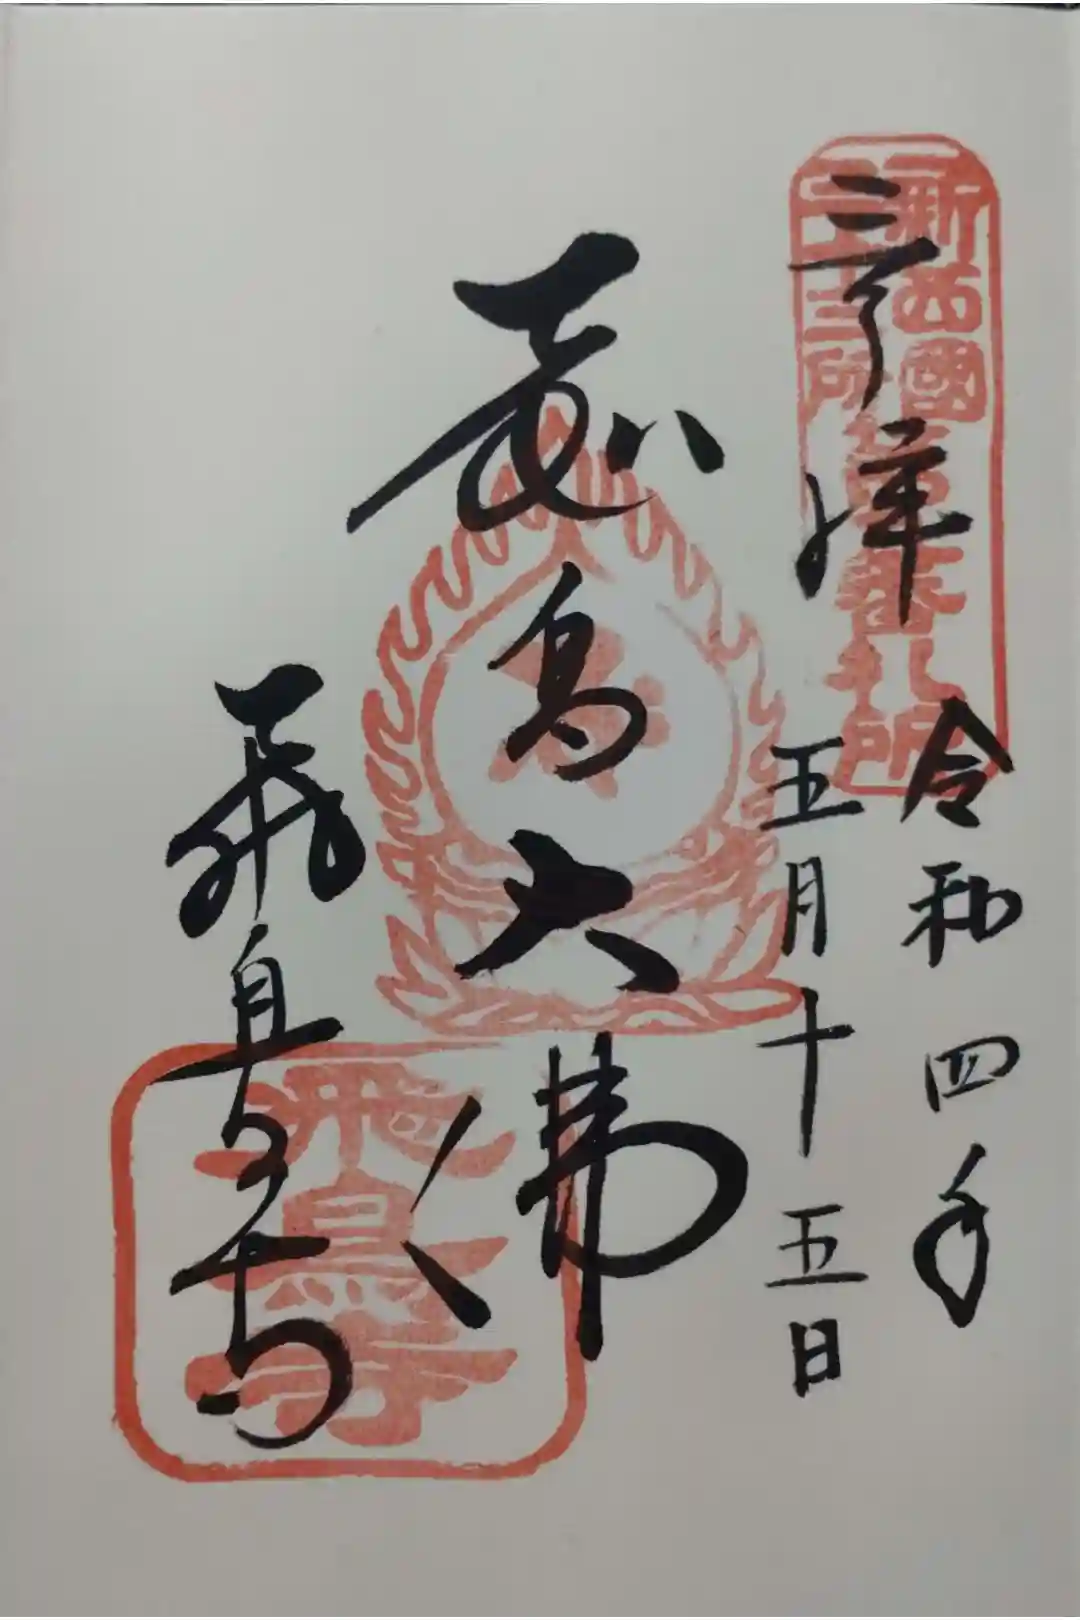 新西國
三十三所
第九番札所
奉拝
令和四年
五月十五日
飛鳥大佛
飛鳥寺
飛鳥寺